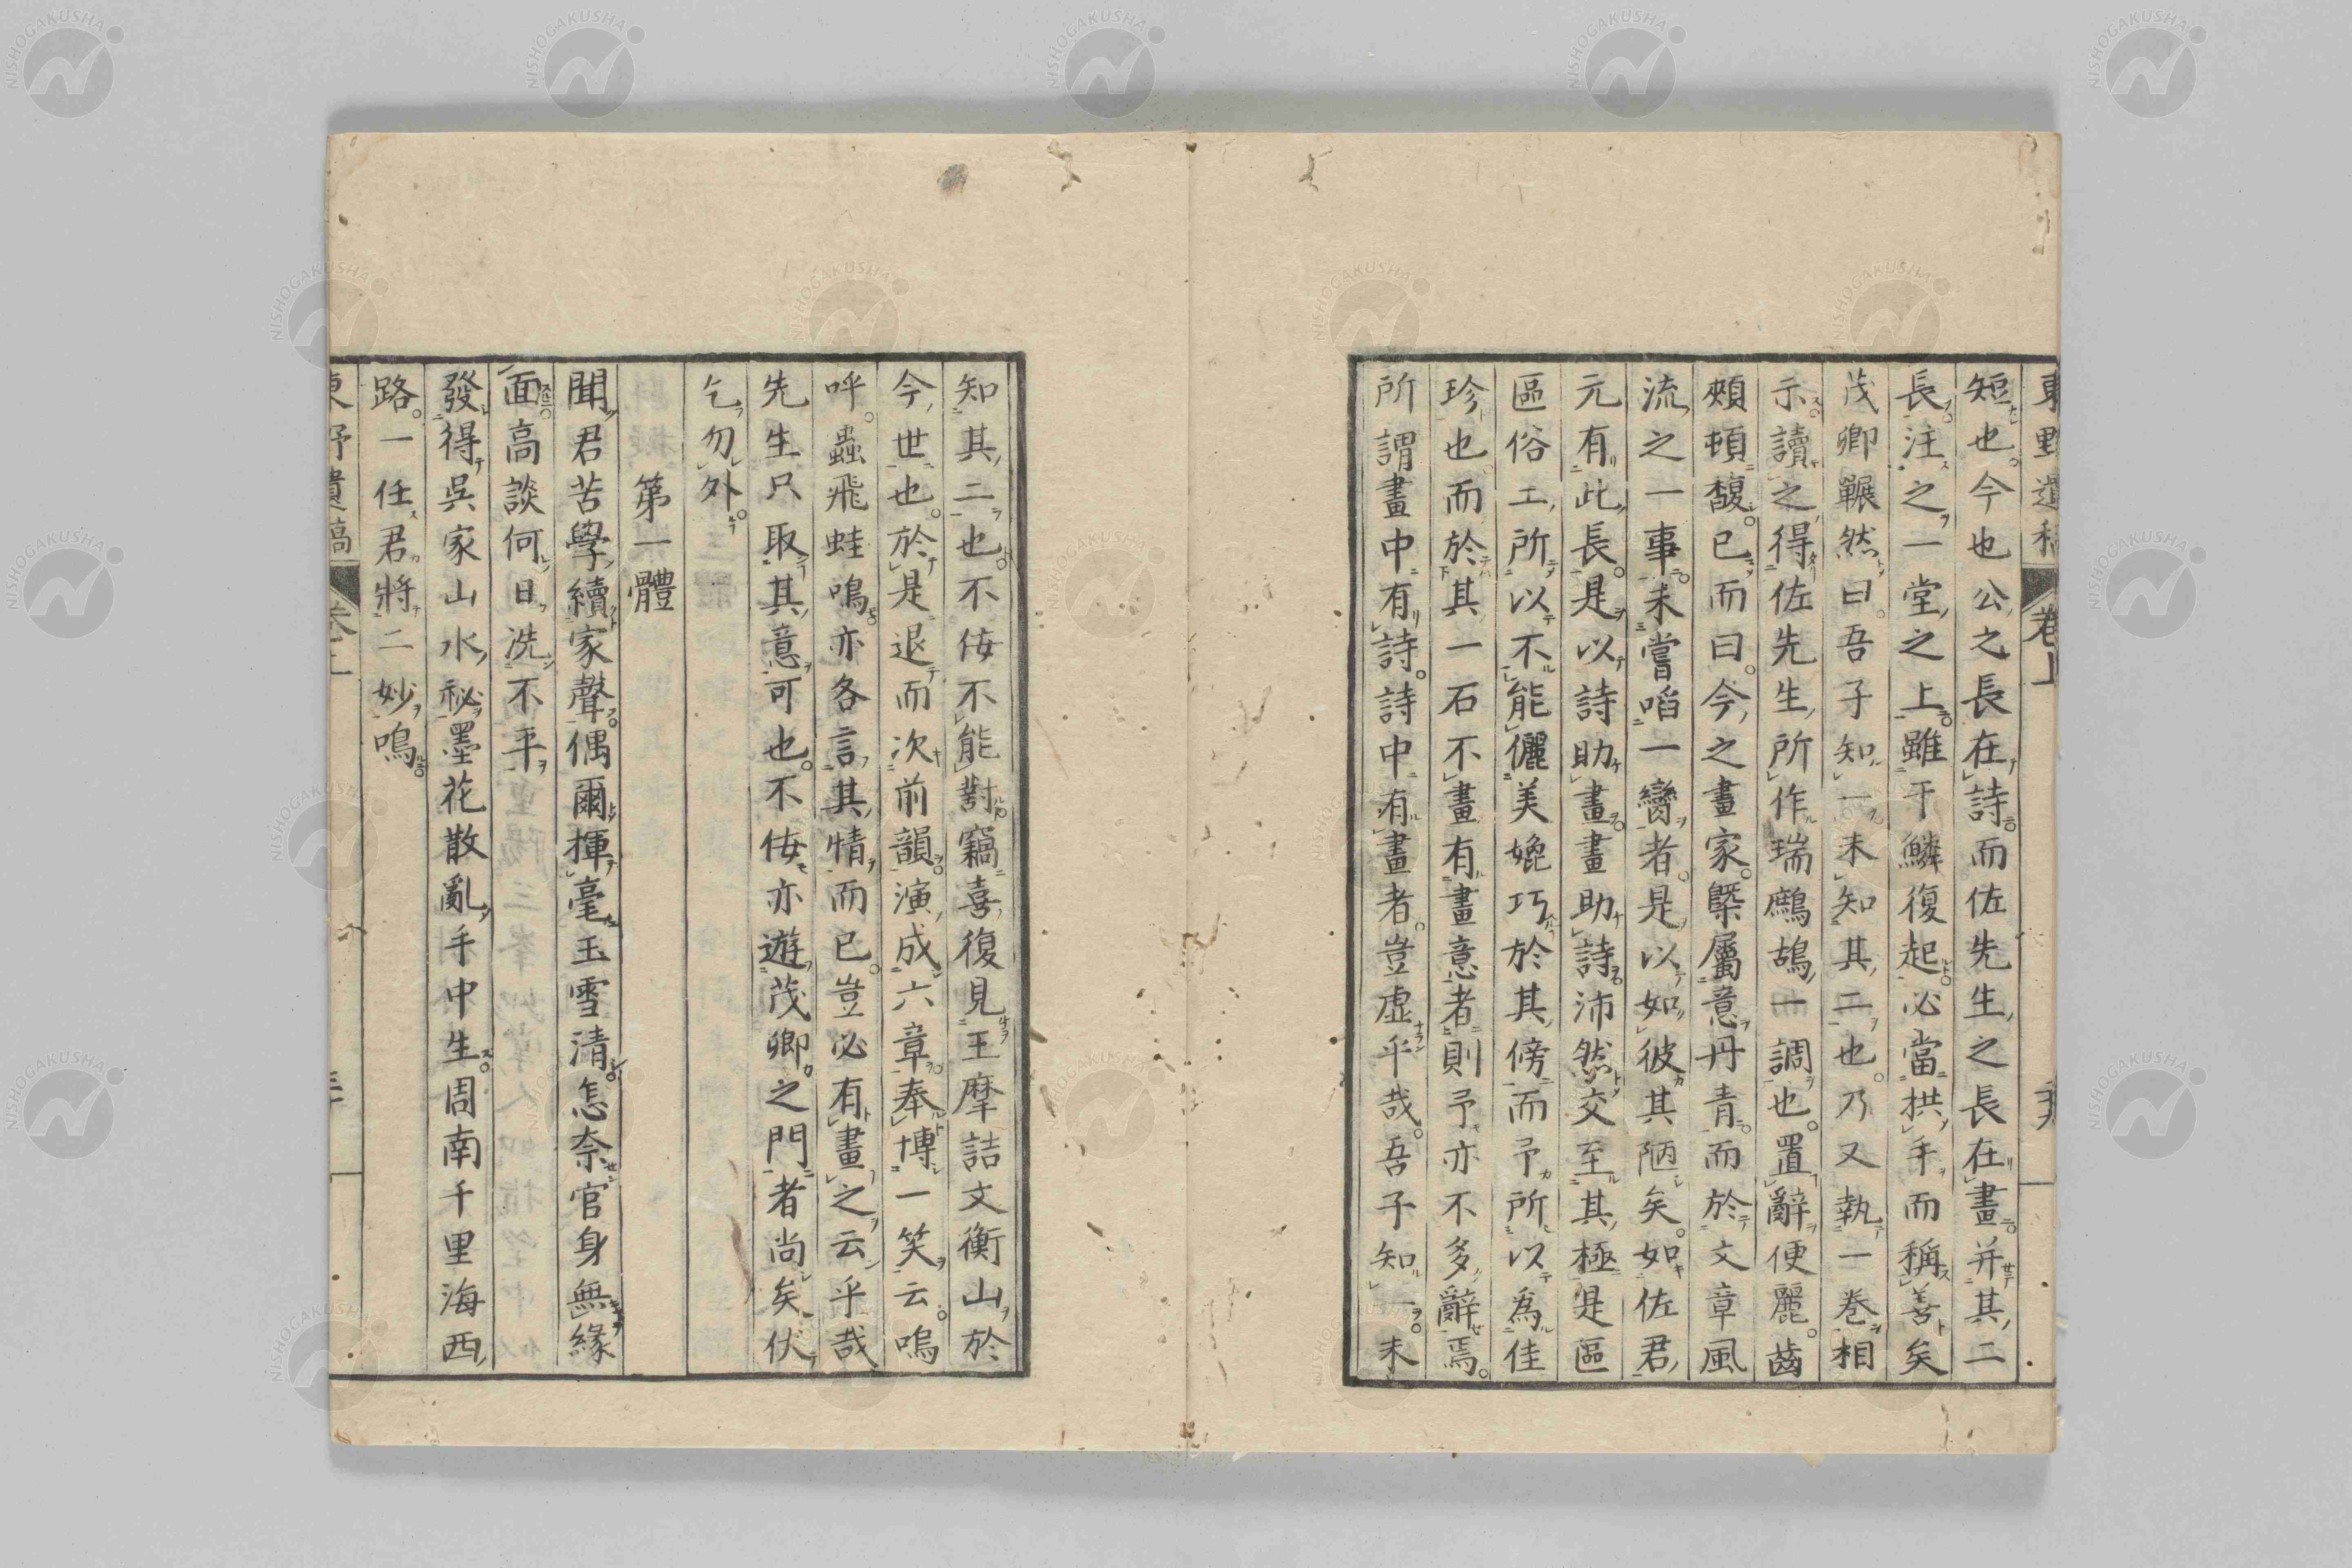 東野遺稿 卷上
短也今也公之長在詩而佐先生之長在畫并其二
長注之一堂之上雖于鱗復起必當拱手而稱善矣
茂卿囅然曰吾子知一未知其二也乃又執一卷相
示讀之得佐先生所作瑞鷓鴣一調也置辭便麗齒
頰頓馥已而曰今之畫家槩屬意丹青而於文章風
流之一事未嘗啗一臠者是以如彼其陋矣如佐君
元有此長是以詩助畫畫助詩沛然交至其極是區
區俗工所以不能儷美娩巧於其傍而予所以為佳
珍也而於其一石不畫有畫意者則予亦不多辭焉
所謂畫中有詩詩中有畫者豈虛乎哉吾子知一未
知其二也不侫不能對竊喜復見王摩詰文衡山於
今世也於是退而次前韻演成六章奉博一笑云嗚
呼蟲飛蛙鳴亦各言其情而已豈必有畫之云乎哉
先生只取其意可也不侫亦遊茂卿之門者尚矣伏
乞勿外
第一體
聞君苦學續家聲偶爾揮毫玉雪清怎奈官身無緣
面高談何日洗不平
發得吳家山水秘墨花散亂手中生周南千里海西
路一任君將二妙鳴
東野遺稿 卷上